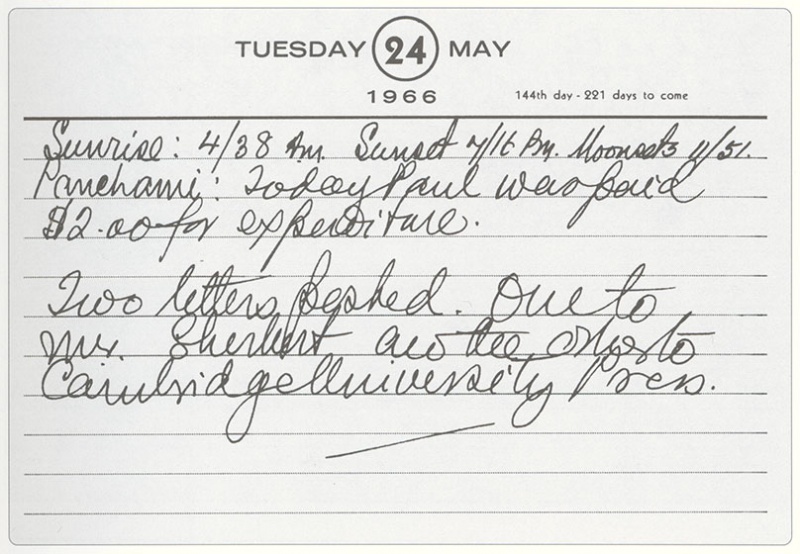 TUESDAY 24 MAY
1966
144th day - 221 days to come
Sunrise: 4/38 Am. Sunset 7/16 Pm. Moonsets 11/51.
Panchami: Today Paul was paid
$2.00 for expenditure.
Two letters posted. One to
Mr. Sherbert another to
Cambridge University Press.